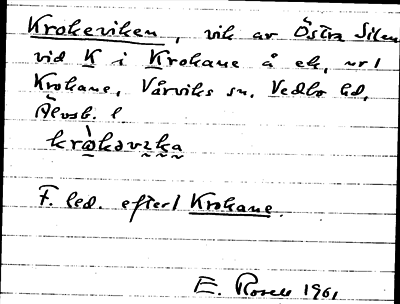 Krokeviken, vik av Östra Silen
vid K i Krokane å ek. nr 1
Krokane, Vårviks sn. Vedbo hd,
Älvsb. l
krò̀kəvɪka
F. led. efterl Krokane.
E. Rosell 1961